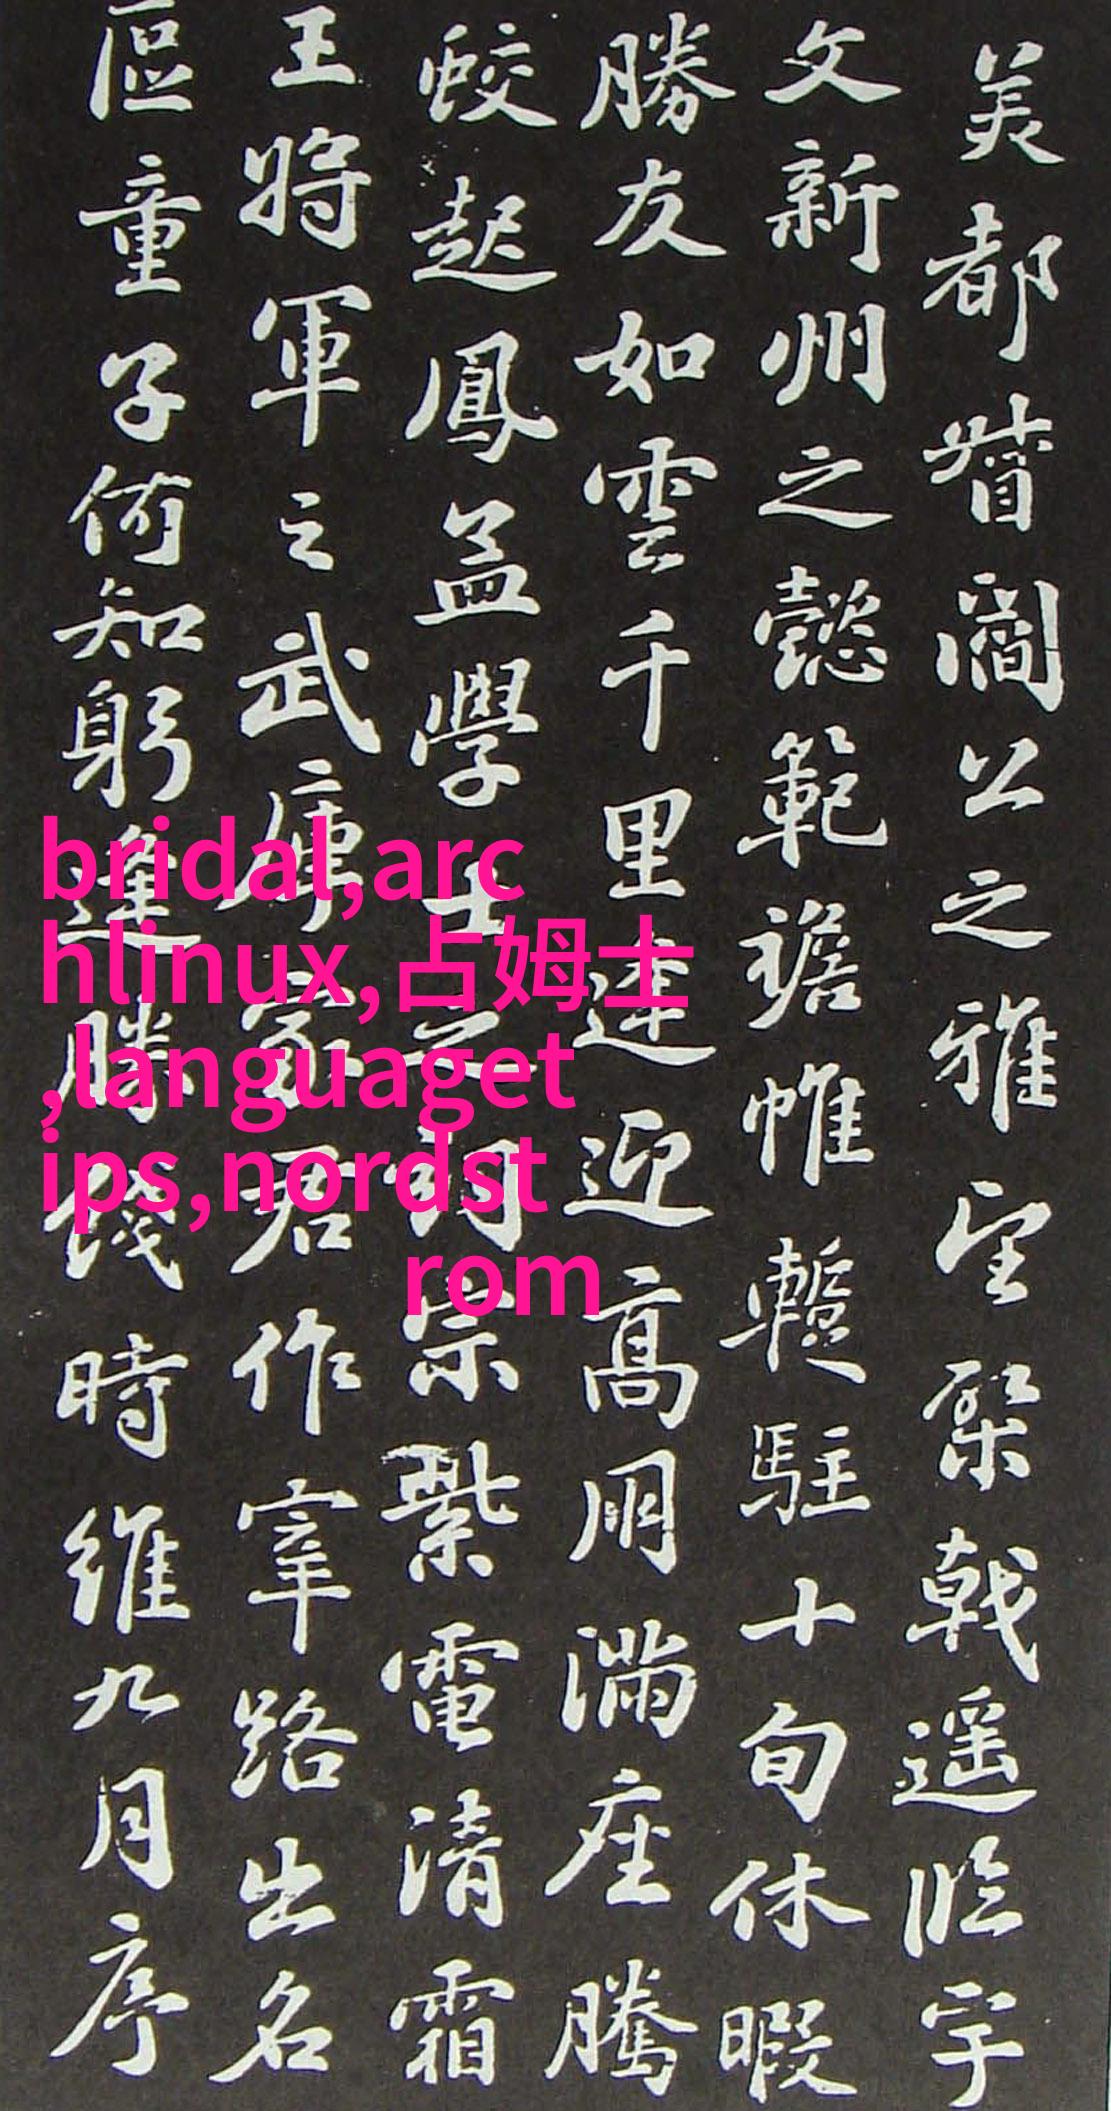 美都督閻公之雅望棨戟遥臨宇
文新州之懿範襜帷暫駐十旬休暇
勝友如雲千里逢迎高朋滿座騰
蛟起鳳孟學士之詞宗紫電清霜
王將軍之武庫家君作宰路出名
區童子何知躬逢勝餞時維九月序
bridal,arc
hlinux,占姆士
,languaget
ips,nordst
rom